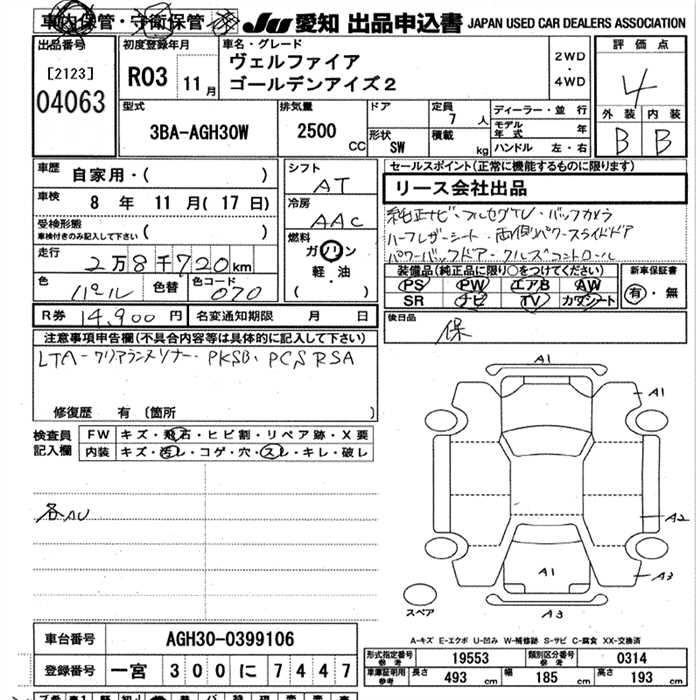 車内保管・守衛保管
JU 愛知 出品申込書 JAPAN USED CAR DEALERS ASSOCIATION
出品番号
[2123]
04063
初度登録年月
R03 11月
車名・グレード
ヴェルファイア
ゴールデンアイズ2
2WD
・
4WD
評価点
4
外装 内装
B B
型式
3BA-AGH30W
排気量
2500 CC
ドア
形状
SW
定員
7 人
積載
kg
ディーラー・並行
モデル年式 年
ハンドル 左・右
車歴
自家用・( )
車検
8 年 11 月(17 日)
受検形態
車検付きのみ記入して下さい ( )
走行
2万8千720km
色
パール
色替
色コード
070
シフト
AT
冷房
AAC
燃料
ガソリン
軽・油
( )
セールスポイント(正常に機能するものに限ります)
リース会社出品
純正ナビ・フルセグTV・バックカメラ
ハーフレザーシート・両側パワースライドドア
パワーバックドア・クルーズコントロール
装備品(純正品に限り○をつけてください)
PS PW エアB AW
SR ナビ TV カワシート
新車保証書
有・無
R券 14,900 円 名変通知期限 月 日
後日品
保
注意事項申告欄(不具合内容等は具体的に記入して下さい)
LTA・クリアランスソナー・PKSB、PCS RSA
修復歴 有 〔箇所 〕
検査員
記入欄
FW キズ・飛石・ヒビ割・リペア跡・X要
内装 キズ・汚レ・コゲ・穴・スレ・キレ・破レ
各AU
A1
A1
A2
A3
A1
A3
スペア
A-キズ E-エクボ U-凹み W-補修跡 S-サビ C-腐食 XX-交換済
車台番号 AGH30-0399106
登録番号 一宮 300 に 7447
形式指定番号 参考 19553 類別区分番号 参考 0314
車庫証明用 参考 長さ 493 cm 幅 185 cm 高さ 193 cm